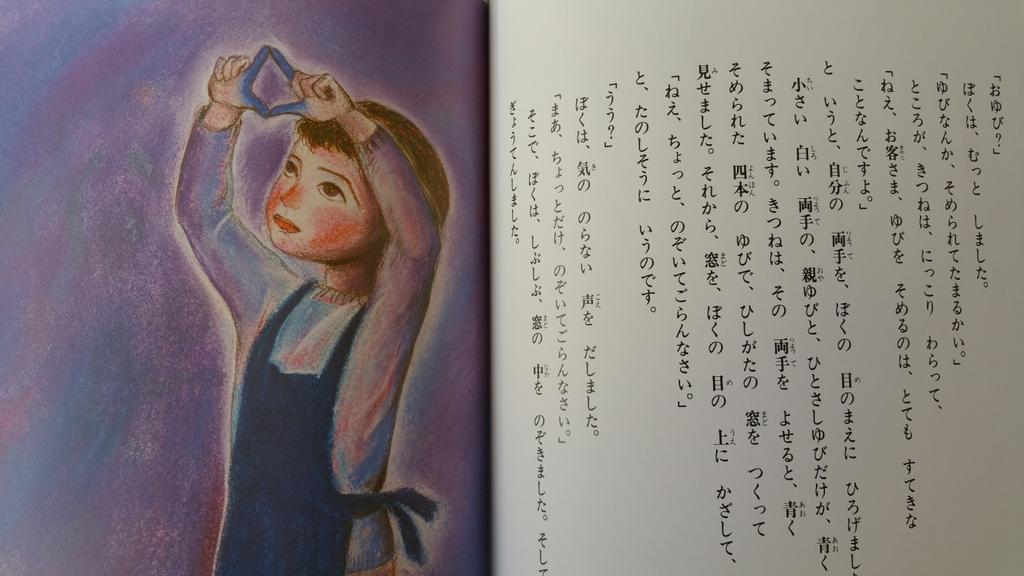 「おゆび?」
ぼくは、むっと しました。
「ゆびなんか、そめられてたまるかい。」
ところが、きつねは、にっこり わらって、
「ねえ、お客さま、ゆびを そめるのは、とても すてきな
ことなんですよ。」
と いうと、自分の 両手を、ぼくの 目のまえに ひろげまし
小さい 白い 両手の、親ゆびと、ひとさしゆびだけが、青く
そまっています。きつねは、その 両手を よせると、青く
そめられた 四本の ゆびで、ひしがたの 窓を つくって
見せました。それから、窓を、ぼくの 目の 上に かざして、
「ねえ、ちょっと、のぞいてごらんなさい。」
と、たのしそうに いうのです。
「うう?」
ぼくは、気の のらない 声を だしました。
「まあ、ちょっとだけ、のぞいてごらんなさい。」
そこで、ぼくは、しぶしぶ、窓の 中を のぞきました。そして
ぎょうてんしました。